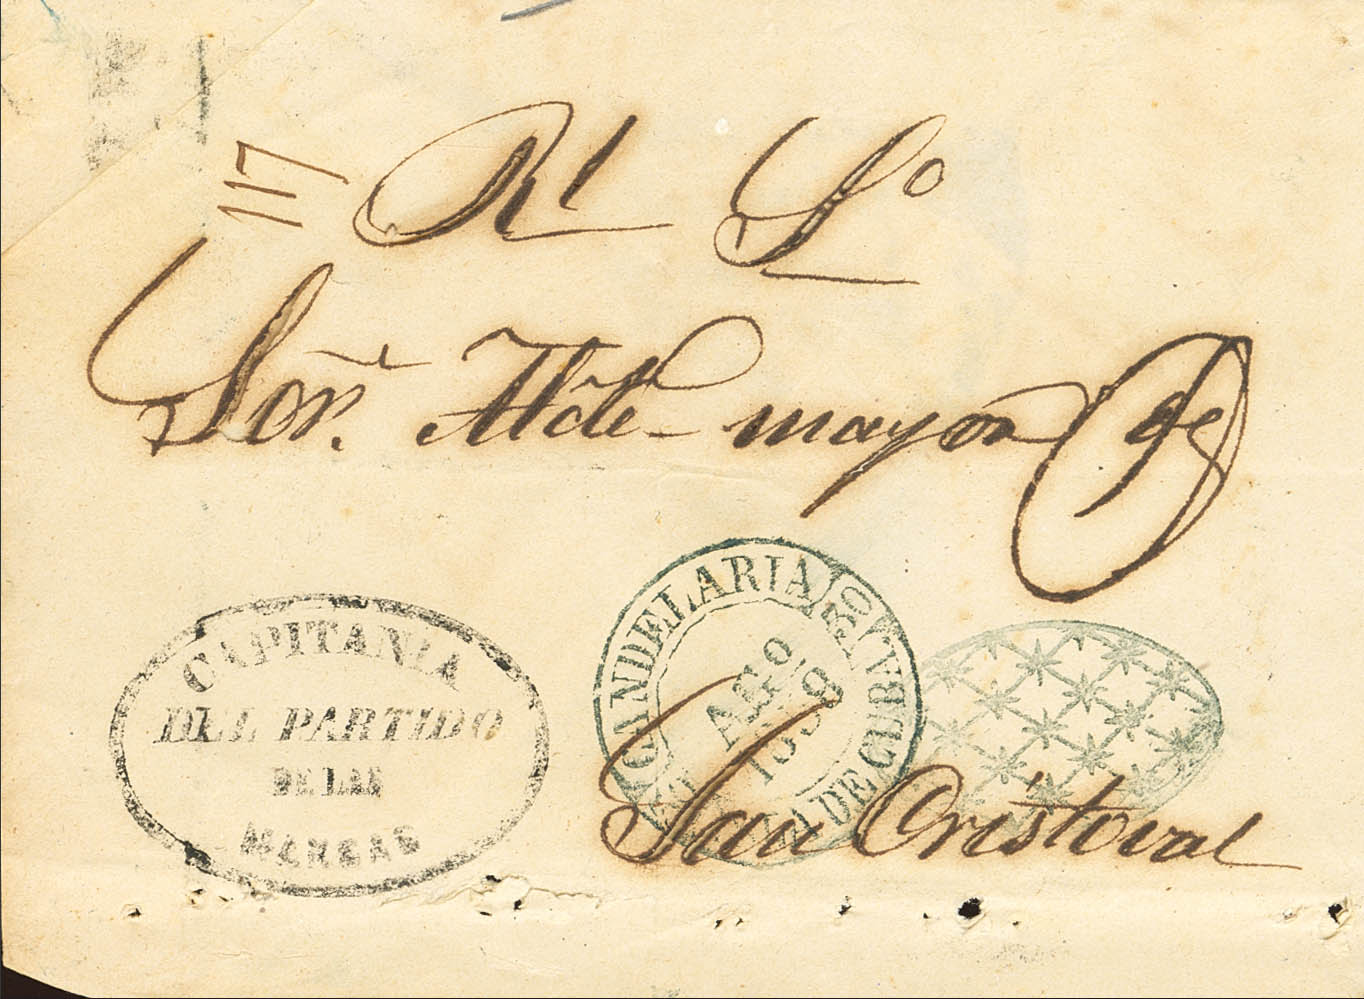 117 Rl So
Sor. Alcde mayor de
San Cristoval
CAPITANIA
DEL PARTIDO
DE LAS
MANGAS
CANDELARIA
AGo
1858
YSLA DE CUBA